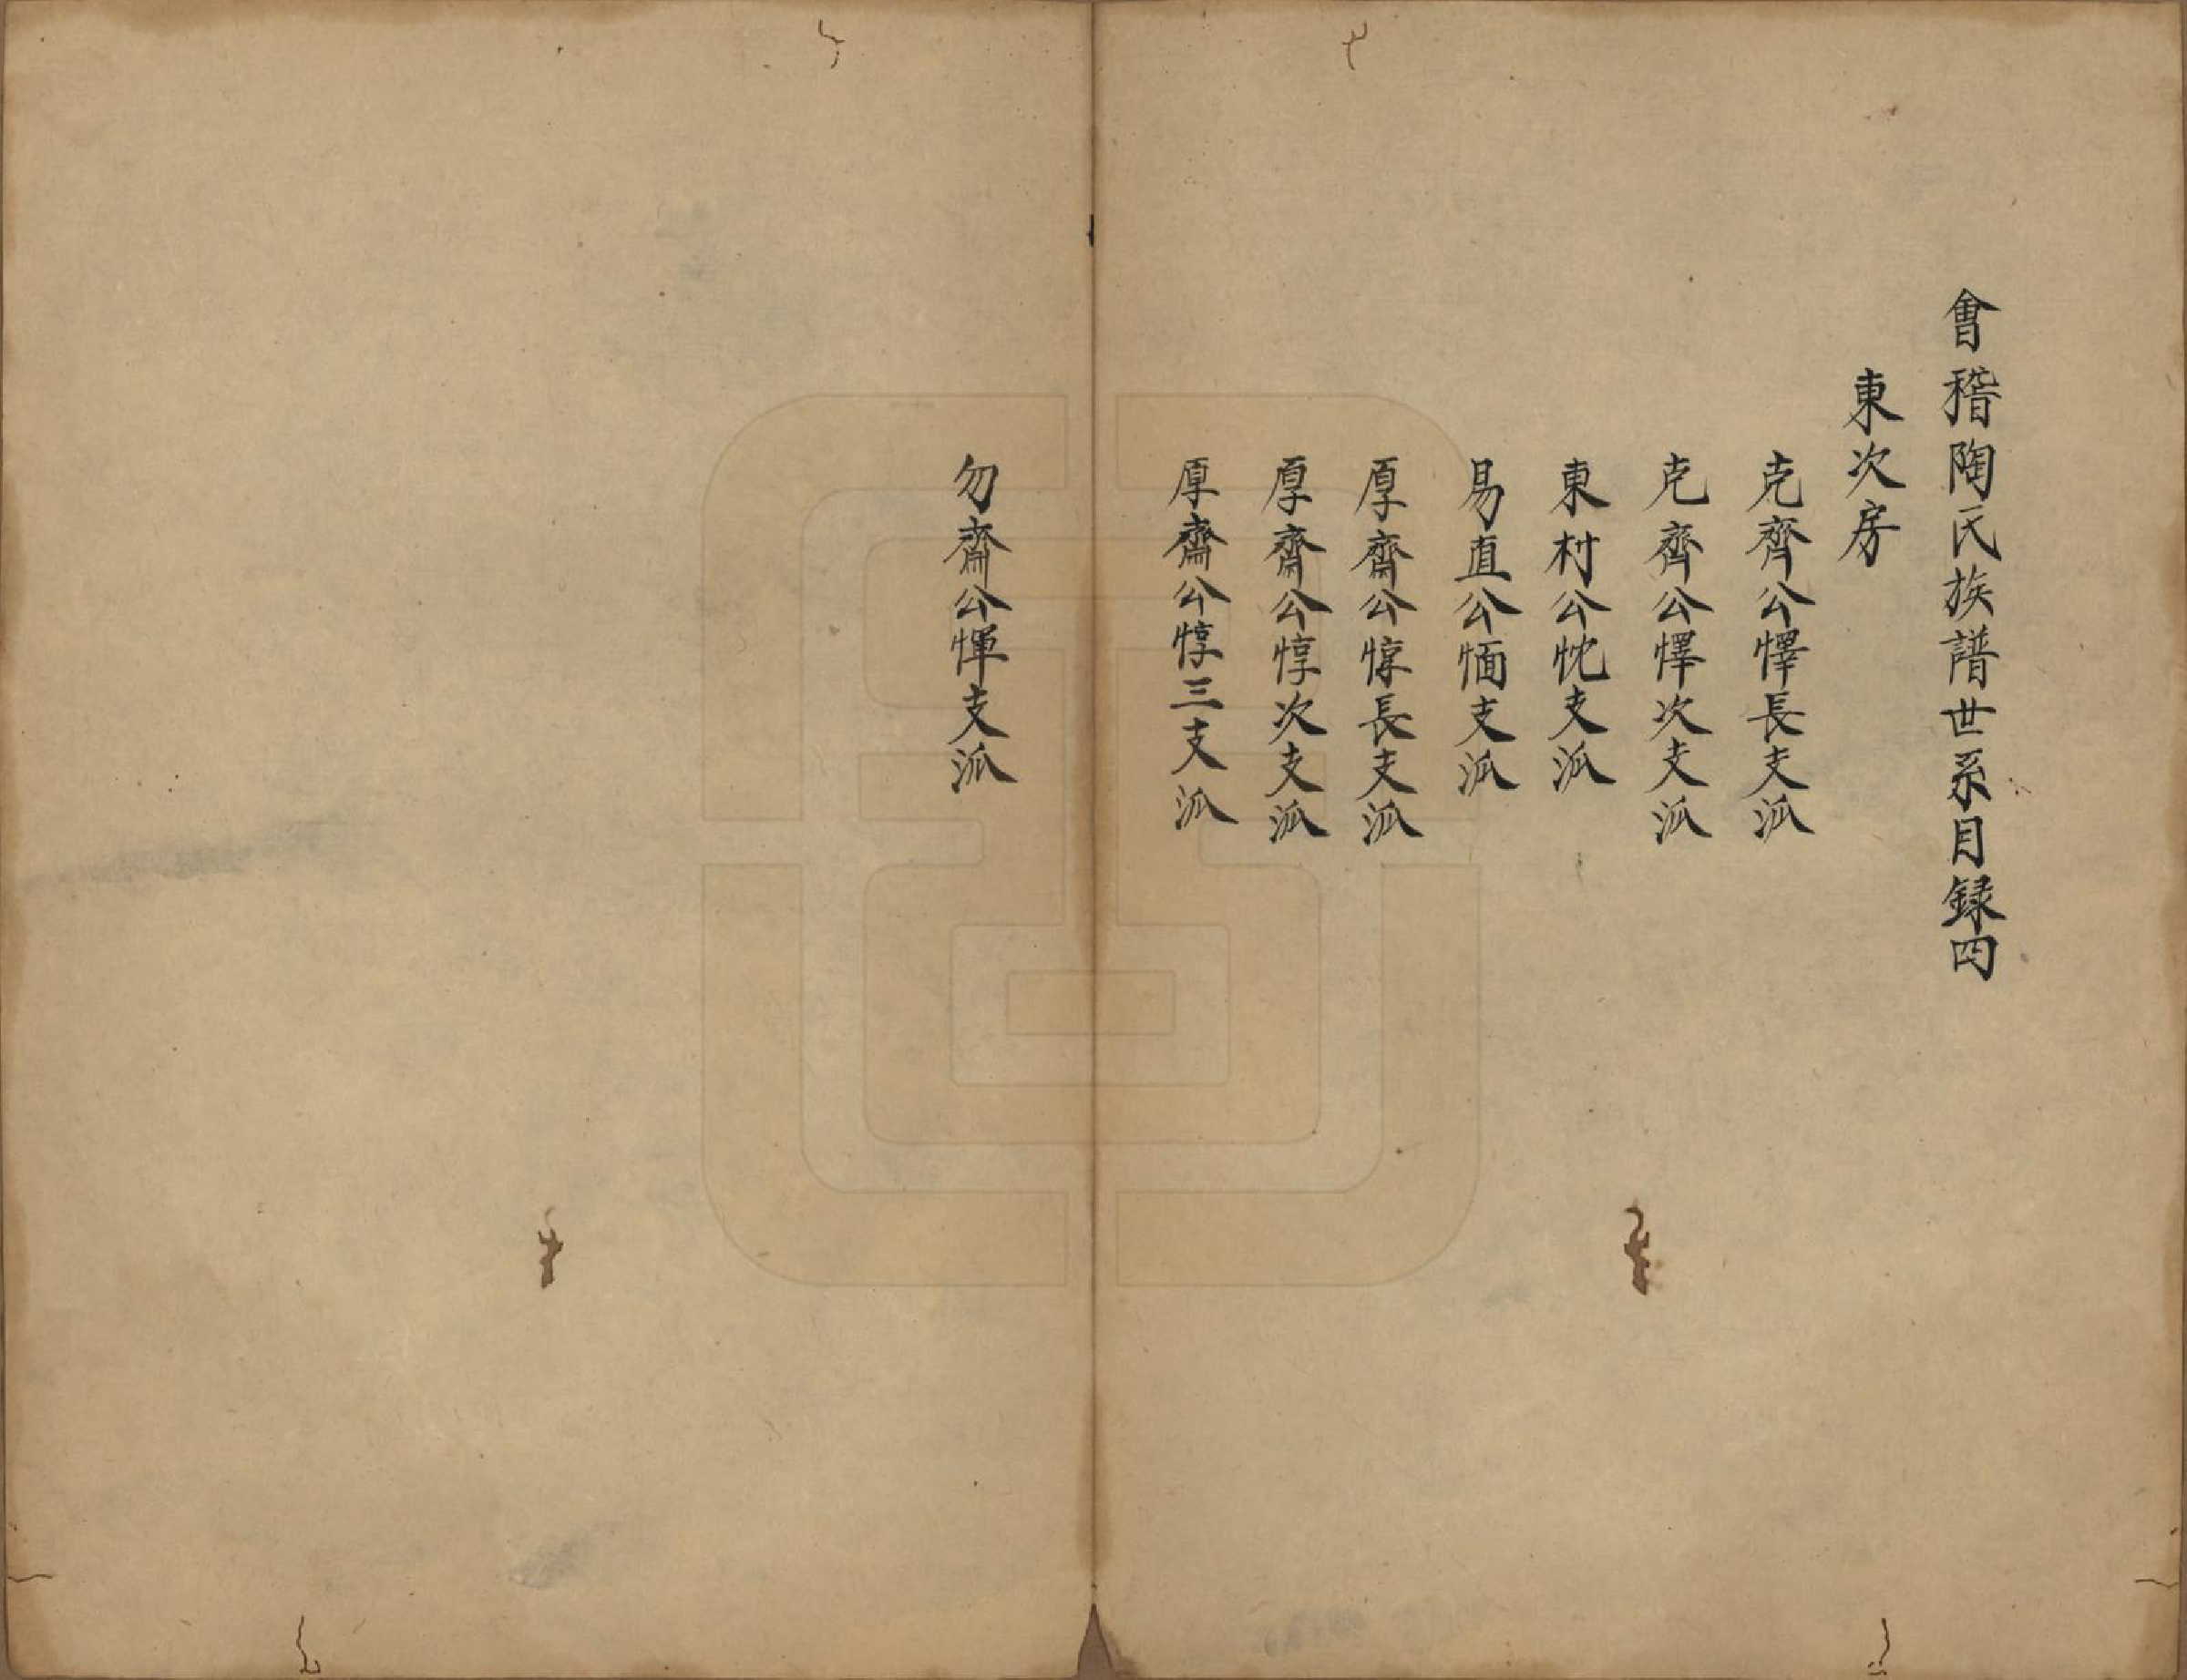 會稽陶氏族譜世系目録四
東次房
克齊公懌長支派
克齊公懌次支派
東村公忱支派
易直公愐支派
厚齋公惇長支派
厚齋公惇次支派
厚齋公惇三支派
勿齋公惲支派